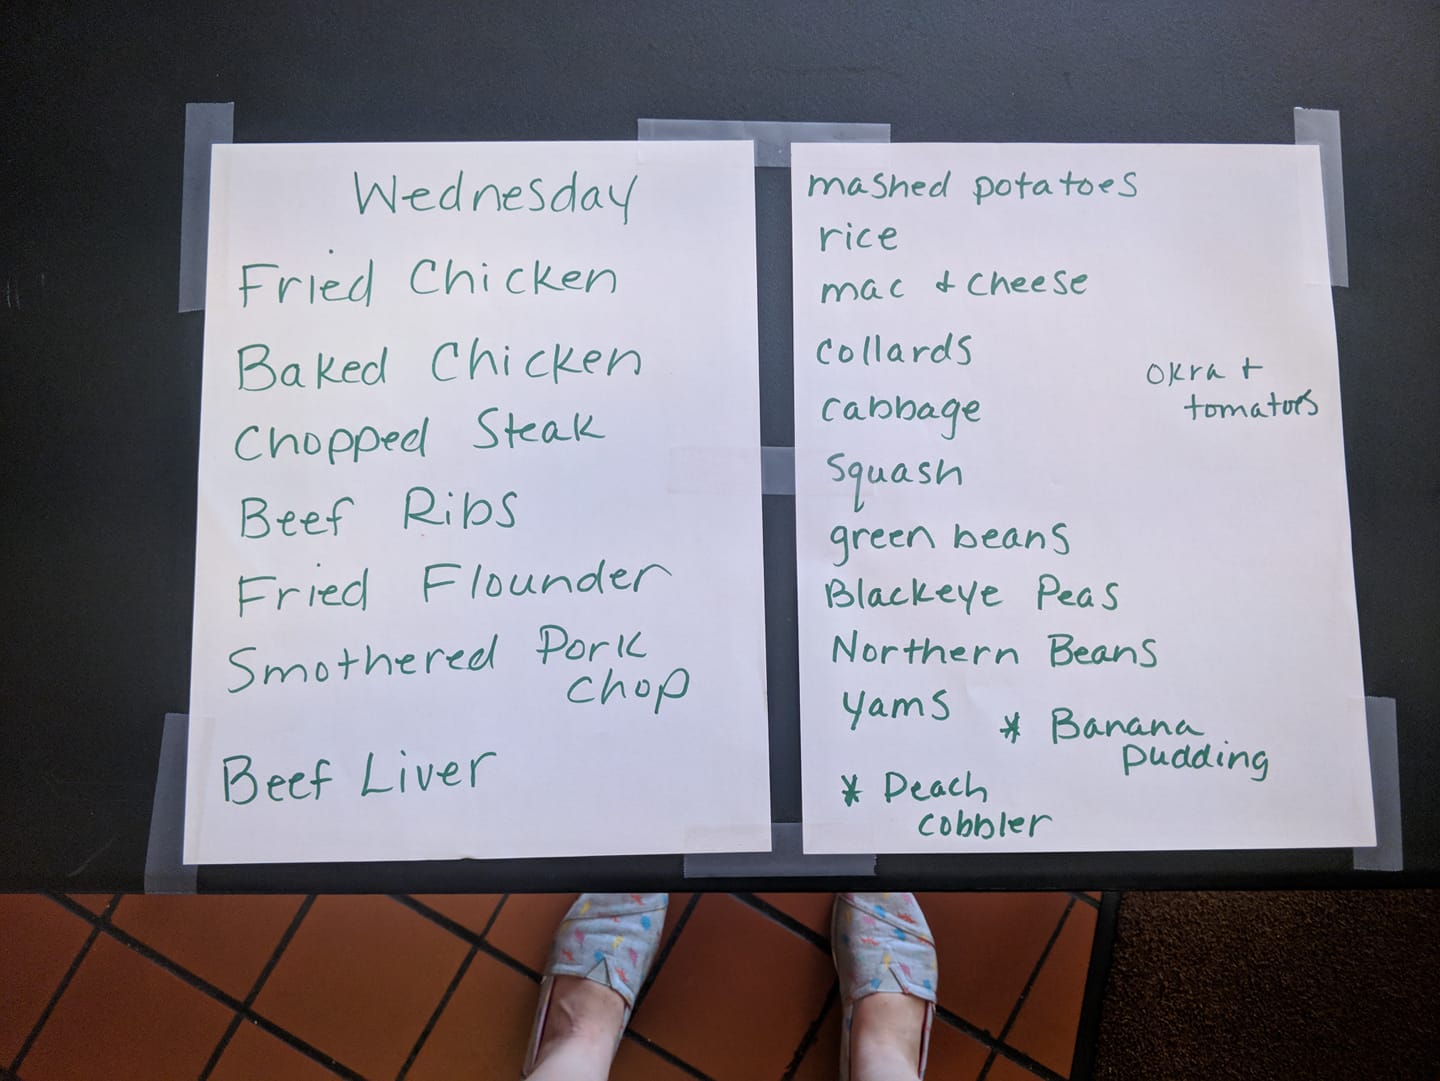 Wednesday
Fried Chicken
Baked Chicken
Chopped Steak
Beef Ribs
Fried Flounder
Smothered Pork
Chop
Beef Liver
mashed potatoes
rice
mac + cheese
collards
okra +
tomatoes
cabbage
squash
green beans
Blackeye Peas
Northern Beans
yams
* Banana
pudding
* Peach
cobbler